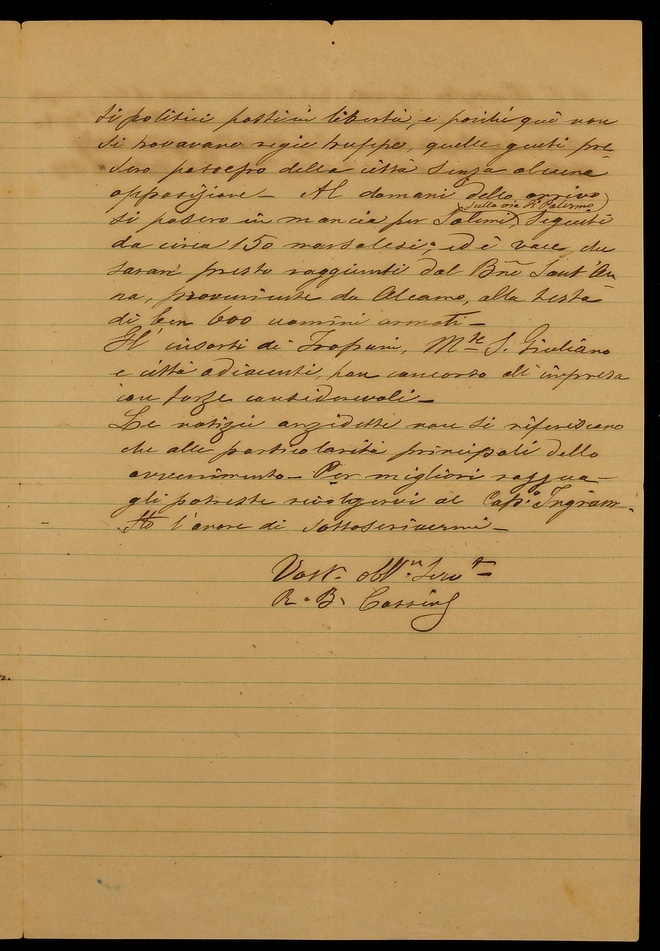 ti politici posti in libertà, e poichè quì non
si trovavano regie truppe, quelle genti pre-
sero possesso della città senza alcuna
opposizione — Al domani dello arrivo
(sulla via di Palermo)
si posero in marcia per Salemi, seguiti
da circa 150 marsalesi; ed è voce, che
saran' presto raggiunti dal Bne Sant'An
na, proveniente da Alcamo, alla testa
di ben 600 uomini armati —
Gl'insorti di Trapani, Mte S. Giuliano
e città adiacenti, han concorso all'impresa
con forze considerevoli —
Le notizie anzidette non si riferiscono
che alle particolarità principali dello
avvenimento — Per migliori raggua-
gli potreste rivolgervi al Capo Ingram —
Ho l'onore di sottoscrivermi —
Vost. obbl.
R. B. Cossins